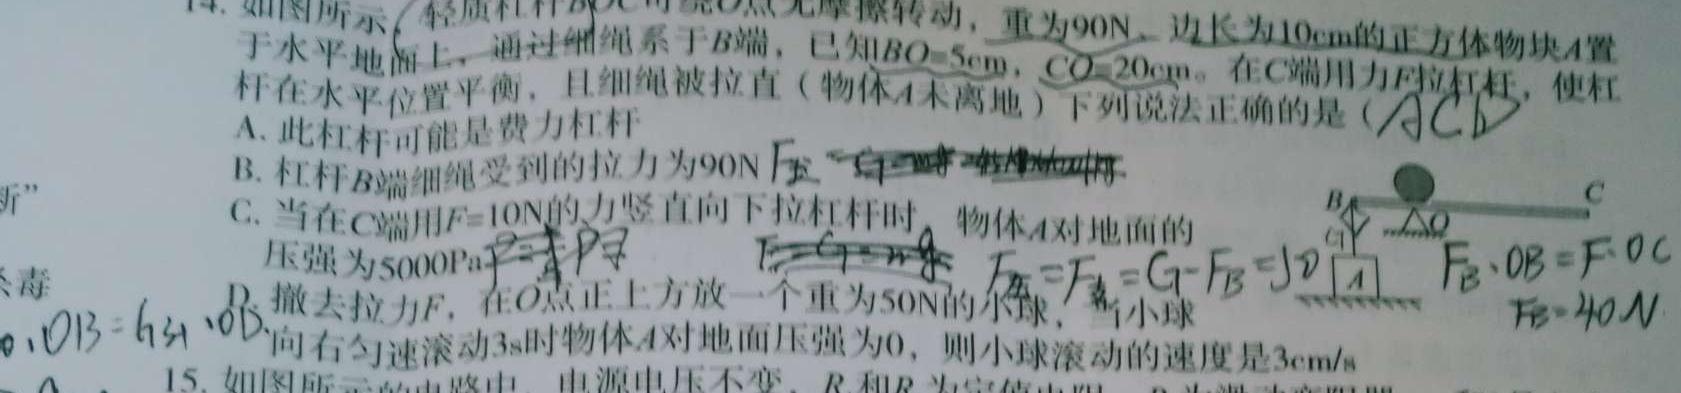 14. 如图所示，轻质杠杆BOC可绕O点无摩擦转动，重为90N、边长为10cm的正方体物块A置
于水平地面上，通过细绳系于B端，已知BO=5cm，CO=20cm。在C端用力F拉杠杆，使杠
杆在水平位置平衡，且细绳被拉直（物体A未离地）下列说法正确的是（ACD
A. 此杠杆可能是费力杠杆
B. 杠杆B端细绳受到的拉力为90N F压
新”
B C
C. 当在C端用F=10N的力竖直向下拉杠杆时，物体A对地面的
O
压强为5000Pa
F压=F支=G-F_B=50
A
F_B·OB=F·OC
F_B=40N
毒
D. 撤去拉力F，在O点正上方放一个重为50N的小球，当小球
·OB=G球·OD
向右匀速滚动3s时物体A对地面压强为0，则小球滚动的速度是3cm/s
15. 如图所示的电路中，电源电压不变，R 和R 为定值电阻